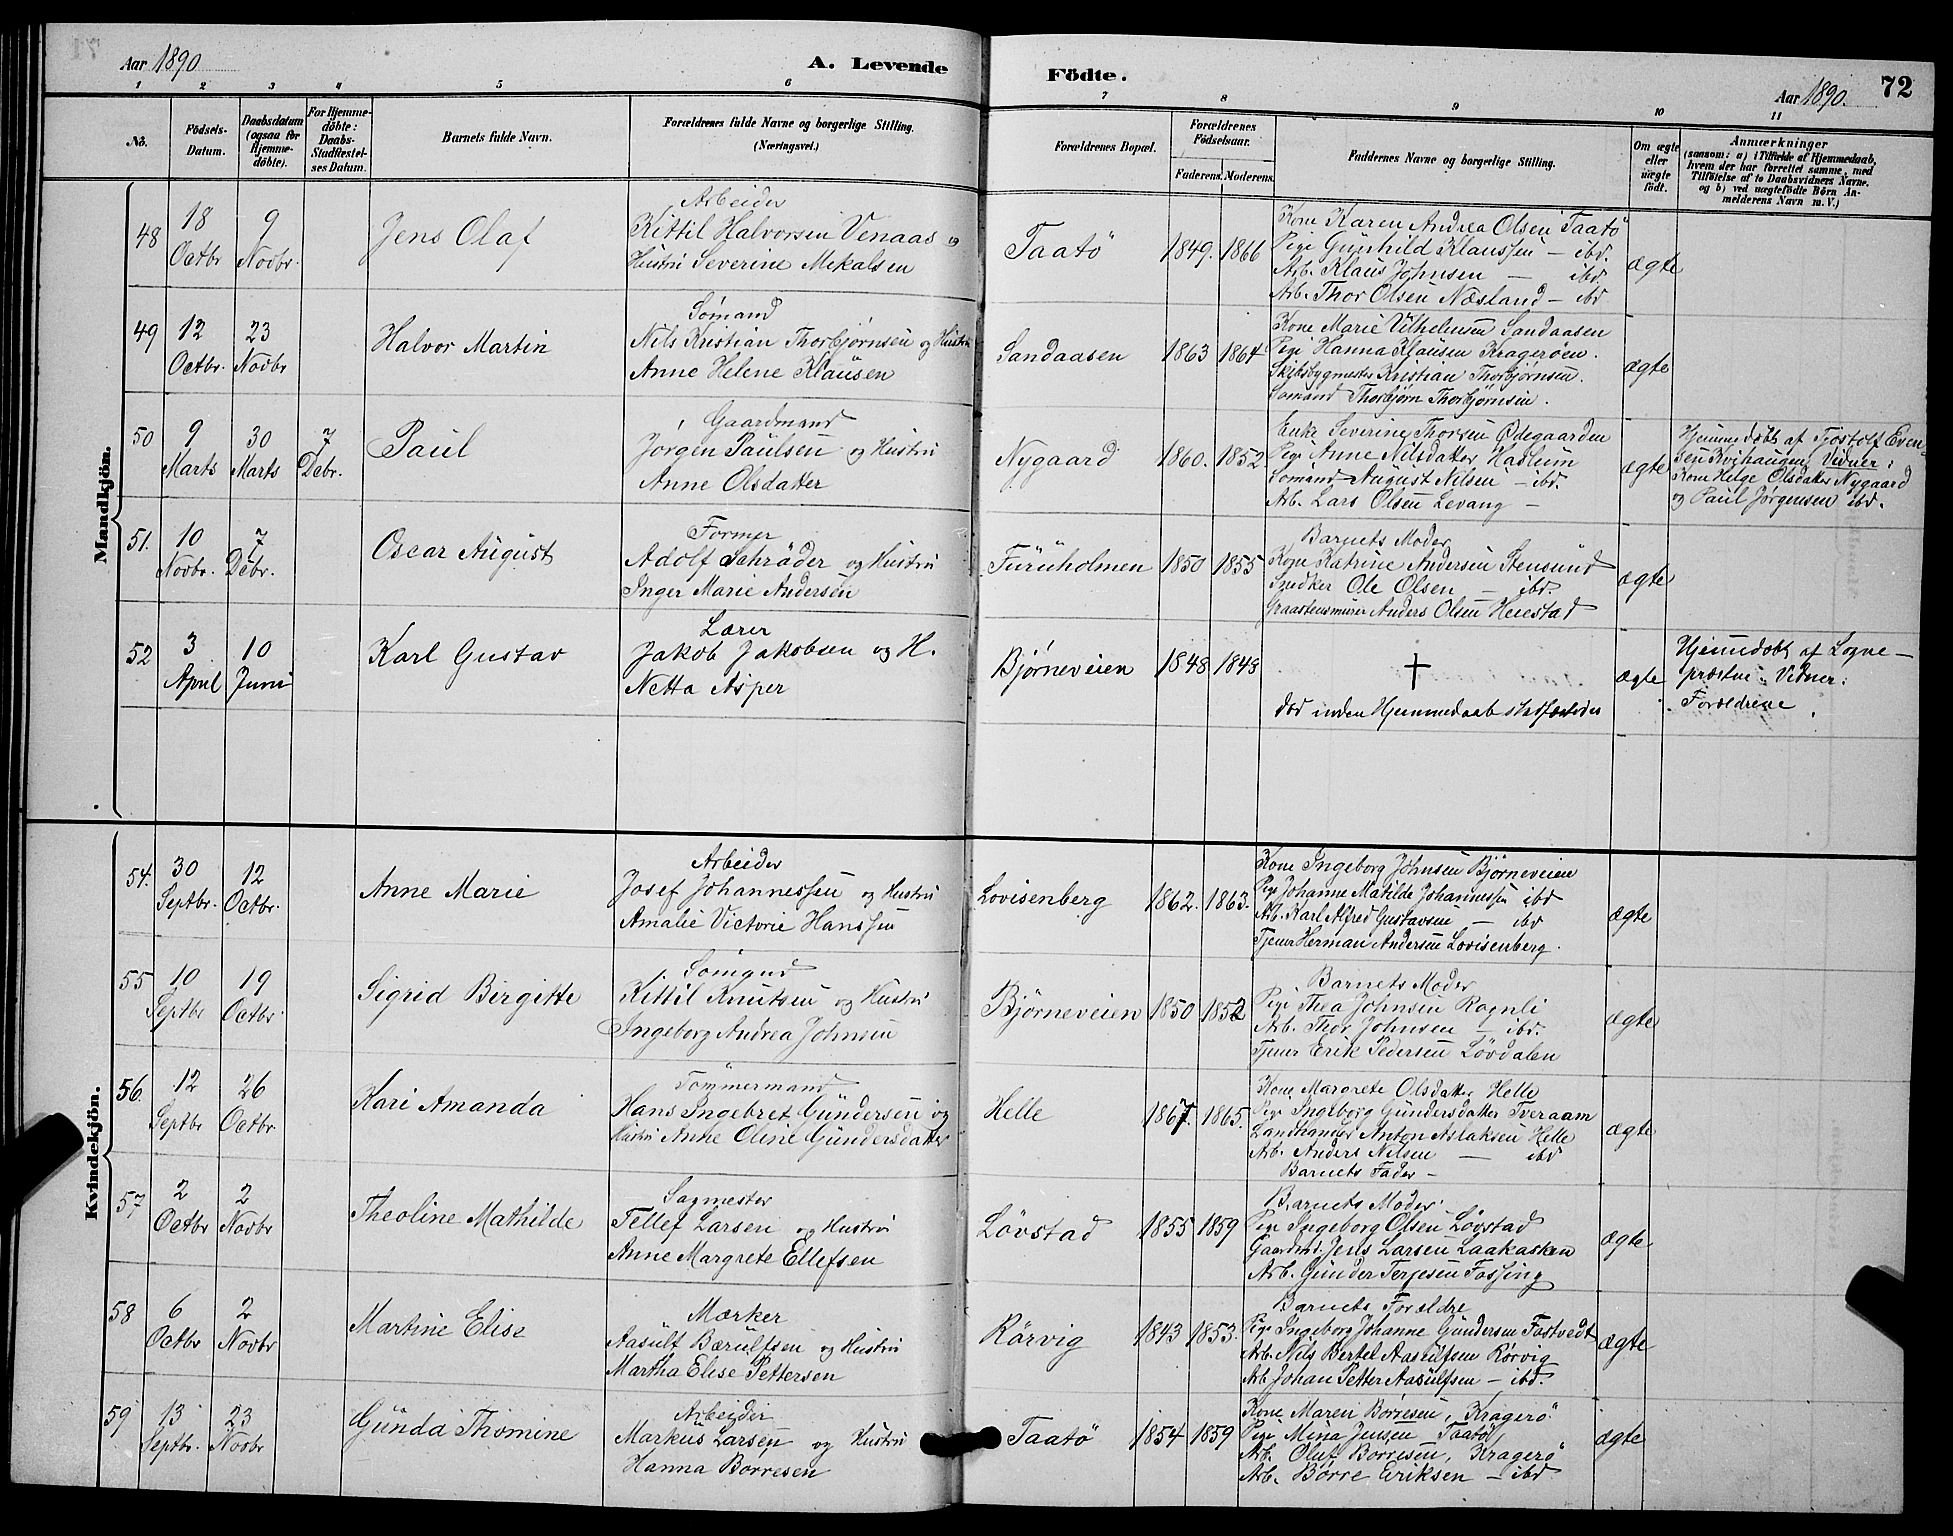 Aar 1890
A. Levende
Födte.
Aar 1890.
72
1 2 3 4 5 6 7 8 9 10 11
No.
Födsels-Datum.
Daabsdatum (ogsaa for Hjemmedöbte).
For Hjemmedöbte: Daabs-Stadfæstelses Datum.
Barnets fulde Navn.
Forældrenes fulde Navne og borgerlige Stilling.
(Næringsvei.)
Forældrenes Bopæl.
Forældrenes Födselsaar.
Faderens. Moderens.
Faddernes Navne og borgerlige Stilling.
Om ægte eller uægte födt.
Anmærkninger
(saasom: a) i Tilfælde af Hjemmedaab, hvem der har forrettet samme, med Tilföielse af to Daabsvidners Navne. og b) ved uægtefödte Börn Anmelderens Navn m. V.)
Mandkjön.
48
18 Octbr
9 Novbr.
Jens Olaf
Arbeider
Kittil Halvorsen Venaas og
Hustru Severine Mikalsen
Taatö
1849. 1866
Kone Karen Andrea Olsen Taatö
Pige Gunhild Klaussen — ibd.
Arb. Klaus Johnsen — ibd.
Arb. Thor Olsen Næsland — ibd
ægte
49
12 Octbr.
23 Novbr
Halvor Martin
Sømand
Nils Kristian Thorbjørnsen og Hustru
Anne Helene Klausen
Sandaasen
1863 1864
Kone Marie Vilhelmsen Sandaasen
Pige Hanna Klausen Kragerøen.
Skibsbygmester Kristian Thorbjørnsen.
Sømand Thorbjørn Thorbjørnsen.
ægte
50
9 Marts
30 Marts
7 Debr.
Paul
Gaardmand
Jørgen Paulsen og Hustru
Anne Olsdatter
Nygaard
1860. 1852
Enke Severine Thorsen Ødegaarden
Pige Anne Nilsdatter Haslum
Sømand August Nilsen — ibd.
Arb. Lars Olsen Levang —
ægte
Hjemmedøbt af Tjostolf Even-
sen Kvihaugen, Vidner:
Kone Helge Olsdatter Nygaard
og Paul Jørgensen ibd.
51.
10 Novbr.
7 Debr.
Oscar August
Former
Adolf Schräder og Hustru
Inger Marie Andersen
Furuholmen
1850 1855
Barnets Moder
Kone Katrine Andersen Stensund
Snedker Ole Olsen — ibd.
Graastensmurer Anders Olsen Heiestad
ægte
52
3 April
10 Juni
Karl Gustav
Lærer
Jakob Jakobsen og H.
Netta Asper
Bjørneveien
1848 1848
†
død inden Hjemmedaab stadfæstedes
ægte
Hjemmedøbt af Sogne-
præsten. Vidner:
Forældrene.
Kvindekjön.
54.
30 Septbr.
12 Octbr.
Anne Marie
Arbeider
Josef Johannessen og Hustru
Amalie Victorie Hanssen
Lovisenberg
1862. 1863.
Kone Ingeborg Johnsen Bjørneveien
Pige Johanne Matilde Johannessen ibd
Arb. Karl Alfred Gustavsen — ibd
Tjener Herman Andersen Lovisenberg.
ægte
55
10 Septbr
19 Octbr
Sigrid Birgitte
Sömand
Kittil Knutsen og Hustru
Ingeborg Andrea Johnsen
Bjørneveien
1850 1852
Barnets Moder
Pige Thea Johnsen Rognli
Arb. Thor Johnsen — ibd.
Tjener Erik Pedersen Lövdalen
ægte
56.
12 Septbr
26 Octbr
Kari Amanda
Tömmermand
Hans Ingebret Gundersen og
Hustru Anne Oline Gundersdatter
Helle
1867. 1865.
Kone Margrete Olsdatter Helle
Pige Ingeborg Gundersdatter Tveraam
Landhandler Anton Aslaksen Helle
Arb. Anders Nilsen — ibd
Barnets Fader —
ægte
57
2 Octbr
2 Novbr
Theoline Mathilde
Sagmester
Tellef Larsen og Hustru
Anne Margrete Ellefsen
Lövstad
1855 1859
Barnets Moder
Pige Ingeborg Olsen Lövstad
Gaardmd. Jens Larsen Laakasken
Arb. Gunder Terjesen Fossing
ægte
58
6 Octbr
2 Novbr
Martine Elise
Mærker
Aasulf Bærulfsen og Hustru
Martha Elise Pettersen
Rörvig
1843 1853.
Barnets Forældre
Pige Ingeborg Johanne Gundersen Fostvedt
Arb. Nils Bertel Aasulfsen Rörvig
Arb Johan Petter Aasulfsen — ibd.
ægte
59
13 Septbr.
23 Novbr
Gunda Thomine
Arbeider
Markus Larsen og Hustru
Hanna Borresen
Taatö
1854 1859
Kone Maren Börresen, Kragerö
Pige Mina Jensen Taatö,
Arb. Oluf Borresen, Kragerö
Arb. Börre Eriksen — ibd
ægte